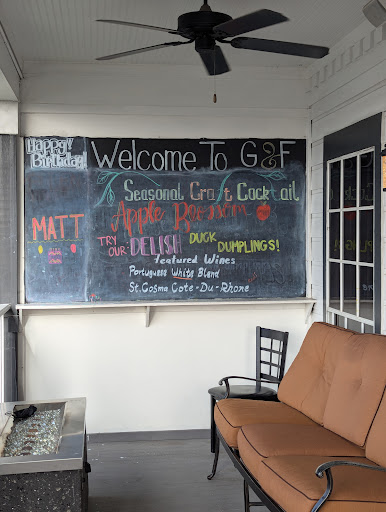 Happy!
Birthday!
MATT
Welcome To G&F
Seasonal Craft Cocktail
Apple Blossom
TRY OUR DELISH DUCK DUMPLINGS!
Featured Wines
Portuguese White Blend
St. Cosma Cote-Du-Rhone